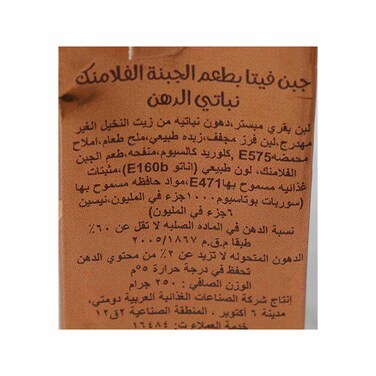 جبن فيتا بطعم الجبنة الفلامنك
نباتي الدهن
لبن بقري مبستر، دهون نباتيه من زيت النخيل الغير
مهدرج، لبن فرز مجفف، زبده طبيعي، ملح طعام، املاح
محمضه E575، كلوريد كالسيوم، منفحه، طعم الجبن
الفلامنك، لون طبيعي (اناتو E160b)، مثبتات
غذائيه مسموح بها E471، مواد حافظه مسموح بها
(سوربات بوتاسيوم ١٠٠٠جزء في المليون، نيسين
٦جزء في المليون)
نسبة الدهن في الماده الصلبه لا تقل عن ٦٠٪
طبقا م.ق.م ٢٠٠٥/١٨٦٧
الدهون المتحوله لا تزيد عن ٢٪ من محتوي الدهن
تحفظ في درجة حرارة ٥°م
الوزن الصافي : ٢٥٠ جرام
إنتاج شركة الصناعات الغذائية العربية دومتي،
مدينة ٦ أكتوبر ، المنطقة الصناعية ٢ق١٢
خدمة العملاء ت: ١٦٤٨٤